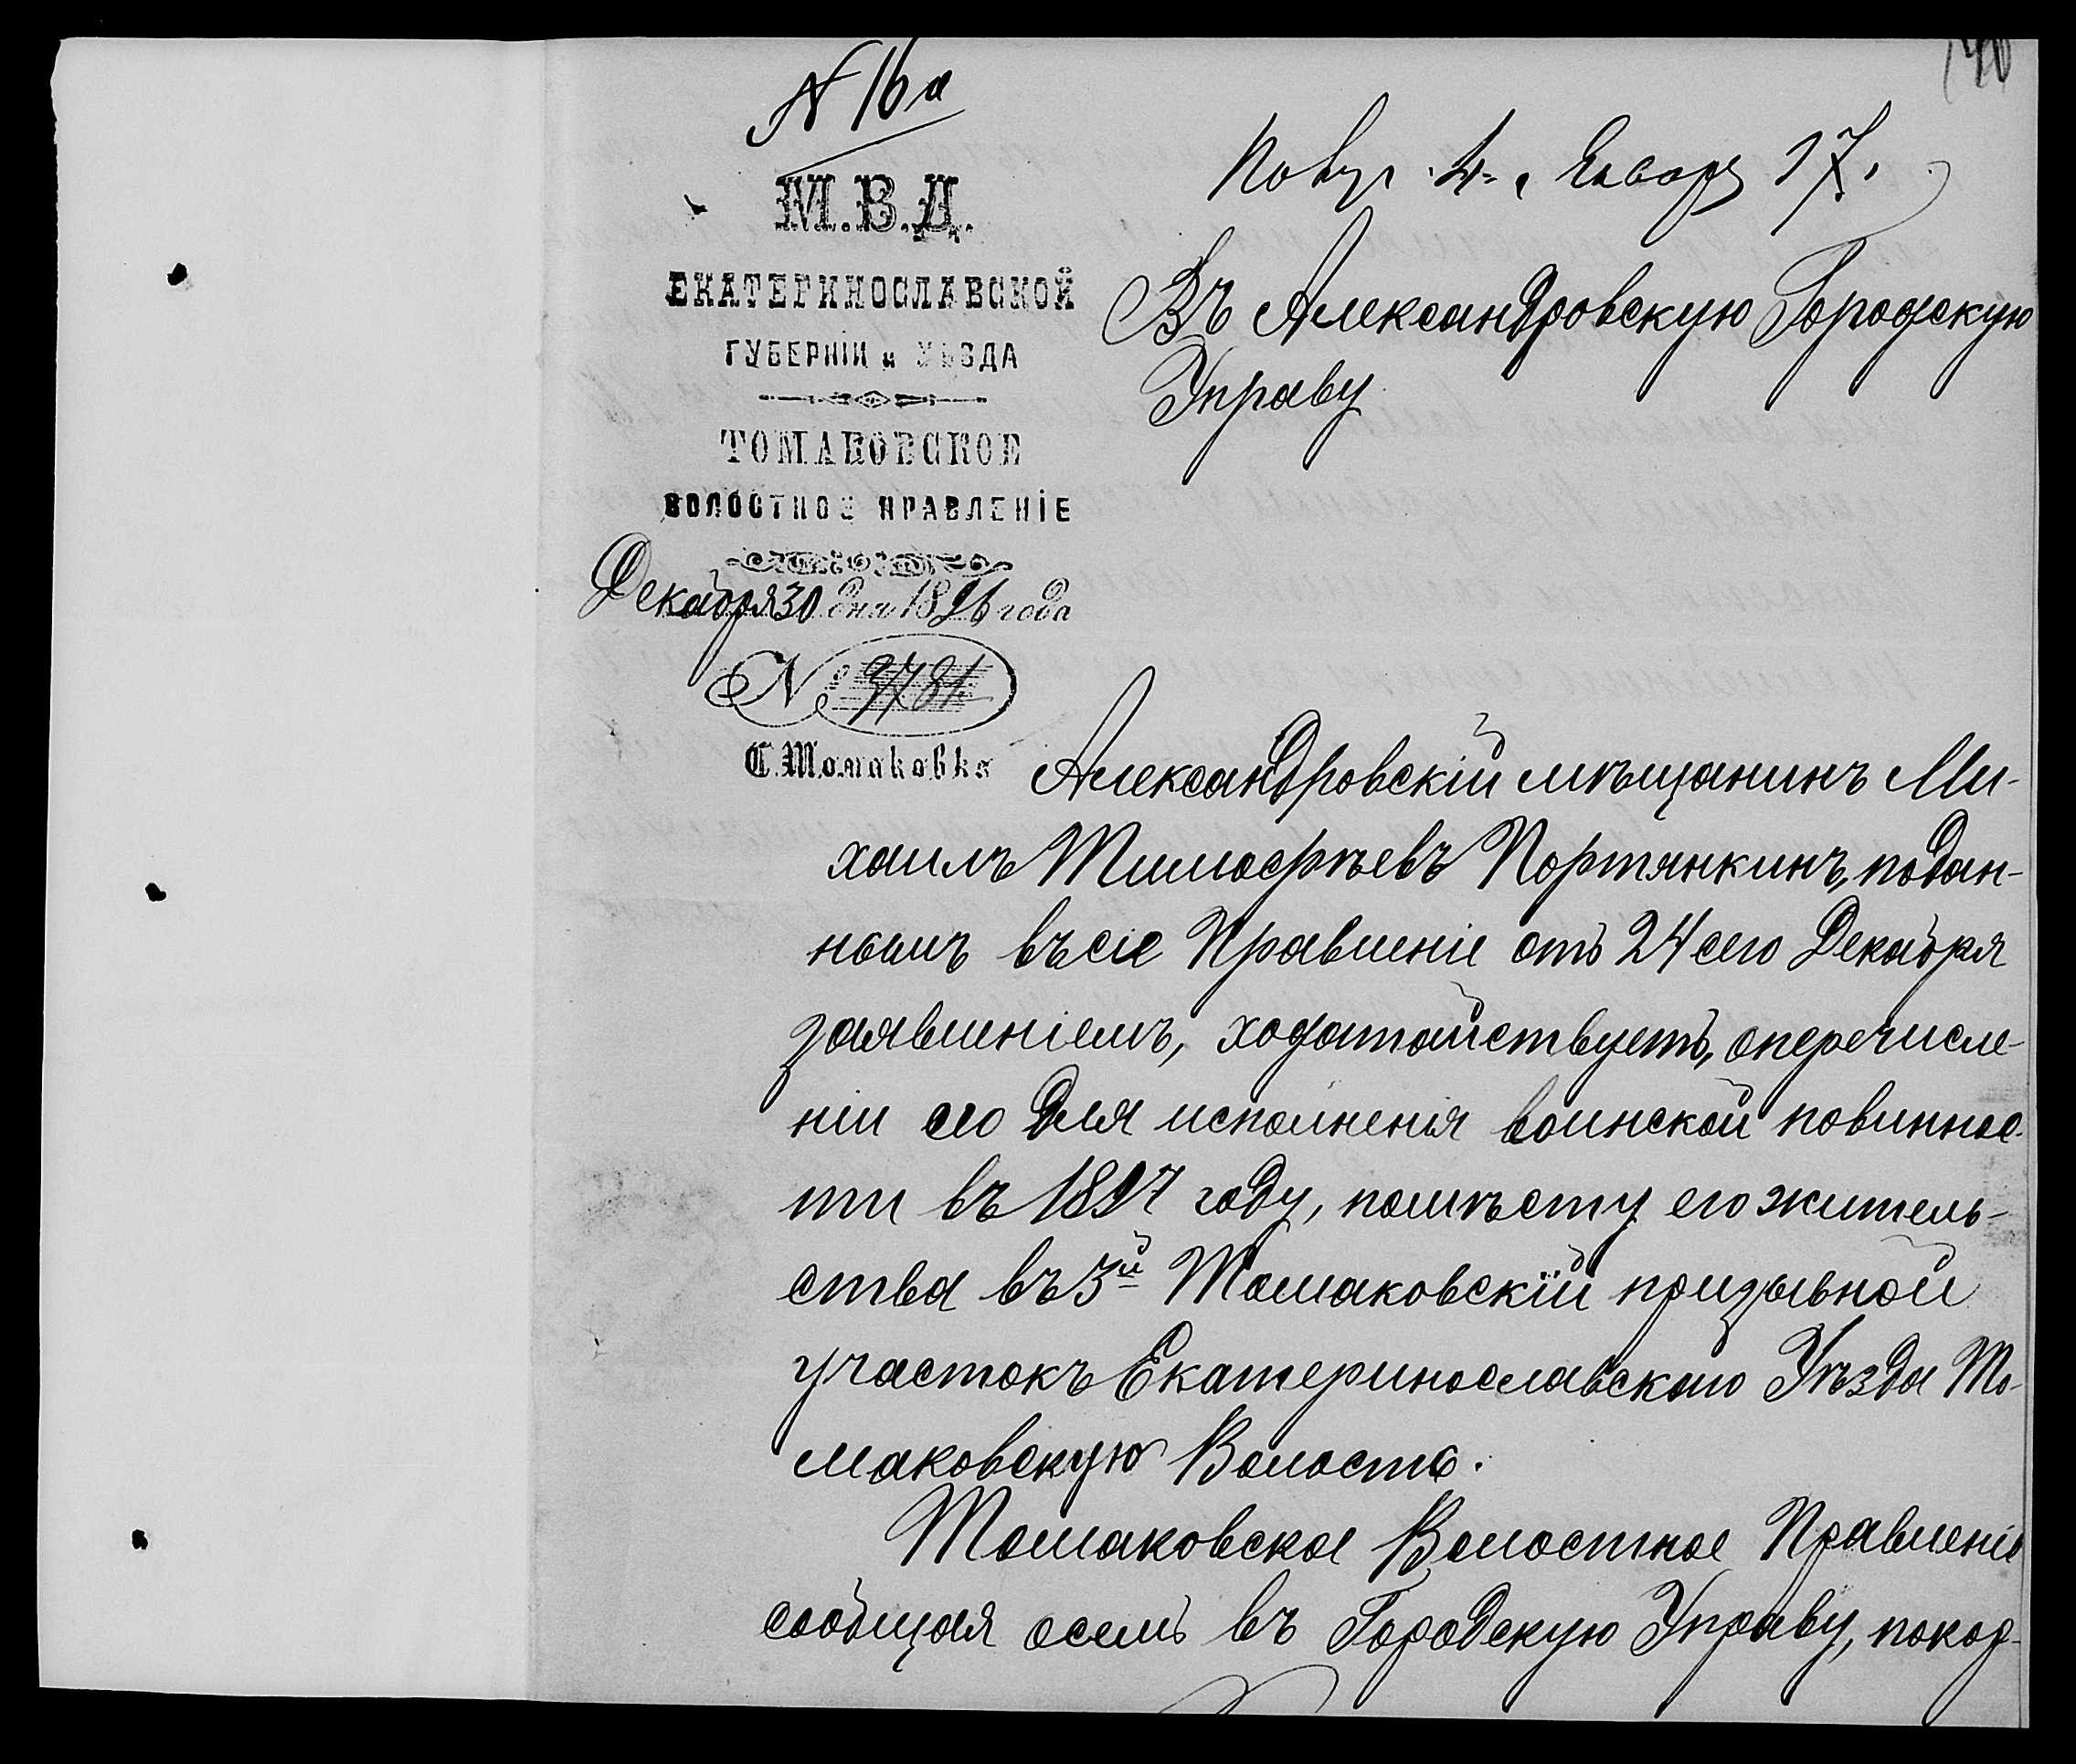 N 16а
140
Получ. 4. Января 97.
М.В.Д.
ЕКАТЕРИНОСЛАВСКОЙ
ГУБЕРНІИ и УѢЗДА
ТОМАКОВСКОЕ
ВОЛОСТНОЕ ПРАВЛЕНІЕ
Декабря 30 дня 1896 года
№ 9781
С. Томаковка
Въ Александровскую Городскую
Управу
Александровскій мѣщанинъ Ми-
хаилъ Тимофѣевъ Портянкинъ, подан-
нымъ въ сіе Правленіе отъ 24 сего Декабря
заявленіемъ, ходатайствуетъ, о перечисле-
ніи его для исполненія воинской повиннос-
ти въ 1897 году, по мѣсту его житель-
ства въ 3й Томаковскій призывной
участокъ Екатеринославскаго Уѣзда То-
маковскую Волость.
Томаковское Волостное Правленіе
сообщая о семъ въ Городскую Управу, покор-